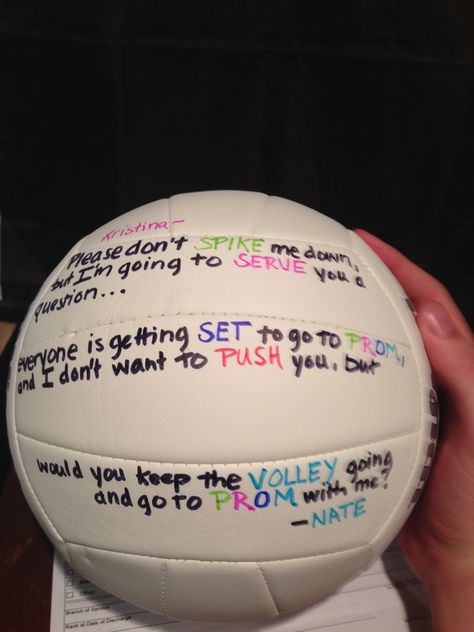 Kristina~
Please don't SPIKE me down,
but I'm going to SERVE you a
question...
everyone is getting SET to go to PROM,
and I don't want to PUSH you, but
would you keep the VOLLEY going
and go to PROM with me?
-NATE
Other:
Branch of Service
Rank at Date of Discharge